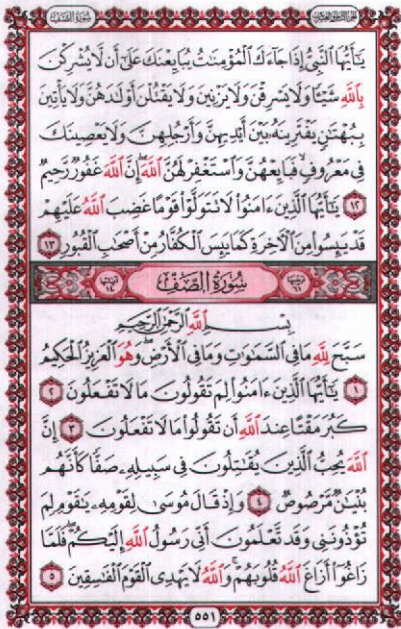 الجزء الثامن والعشرون سورة الصف
يَٰٓأَيُّهَا ٱلنَّبِيُّ إِذَا جَآءَكَ ٱلْمُؤْمِنَٰتُ يُبَايِعْنَكَ عَلَىٰٓ أَن لَّا يُشْرِكْنَ
بِٱللَّهِ شَيْـًٔا وَلَا يَسْرِقْنَ وَلَا يَزْنِينَ وَلَا يَقْتُلْنَ أَوْلَٰدَهُنَّ وَلَا يَأْتِينَ
بِبُهْتَٰنٍ يَفْتَرِينَهُۥ بَيْنَ أَيْدِيهِنَّ وَأَرْجُلِهِنَّ وَلَا يَعْصِينَكَ
فِى مَعْرُوفٍ فَبَايِعْهُنَّ وَٱسْتَغْفِرْ لَهُنَّ ٱللَّهَ إِنَّ ٱللَّهَ غَفُورٌ رَّحِيمٌ
١٢ يَٰٓأَيُّهَا ٱلَّذِينَ ءَامَنُوا۟ لَا تَتَوَلَّوْا۟ قَوْمًا غَضِبَ ٱللَّهُ عَلَيْهِمْ
قَدْ يَئِسُوا۟ مِنَ ٱلْءَاخِرَةِ كَمَا يَئِسَ ٱلْكُفَّارُ مِنْ أَصْحَٰبِ ٱلْقُبُورِ ١٣
ترتيبها ٦١ سُورَةُ الصَّفِّ آياتها ١٤
بِسْمِ ٱللَّهِ ٱلرَّحْمَٰنِ ٱلرَّحِيمِ
سَبَّحَ لِلَّهِ مَا فِى ٱلسَّمَٰوَٰتِ وَمَا فِى ٱلْأَرْضِ وَهُوَ ٱلْعَزِيزُ ٱلْحَكِيمُ
١ يَٰٓأَيُّهَا ٱلَّذِينَ ءَامَنُوا۟ لِمَ تَقُولُونَ مَا لَا تَفْعَلُونَ ٢
كَبُرَ مَقْتًا عِندَ ٱللَّهِ أَن تَقُولُوا۟ مَا لَا تَفْعَلُونَ ٣ إِنَّ
ٱللَّهَ يُحِبُّ ٱلَّذِينَ يُقَٰتِلُونَ فِى سَبِيلِهِۦ صَفًّا كَأَنَّهُم
بُنْيَٰنٌ مَّرْصُوصٌ ٤ وَإِذْ قَالَ مُوسَىٰ لِقَوْمِهِۦ يَٰقَوْمِ لِمَ
تُؤْذُونَنِى وَقَد تَّعْلَمُونَ أَنِّى رَسُولُ ٱللَّهِ إِلَيْكُمْ فَلَمَّا
زَاغُوٓا۟ أَزَاغَ ٱللَّهُ قُلُوبَهُمْ وَٱللَّهُ لَا يَهْدِى ٱلْقَوْمَ ٱلْفَٰسِقِينَ ٥
٥٥١